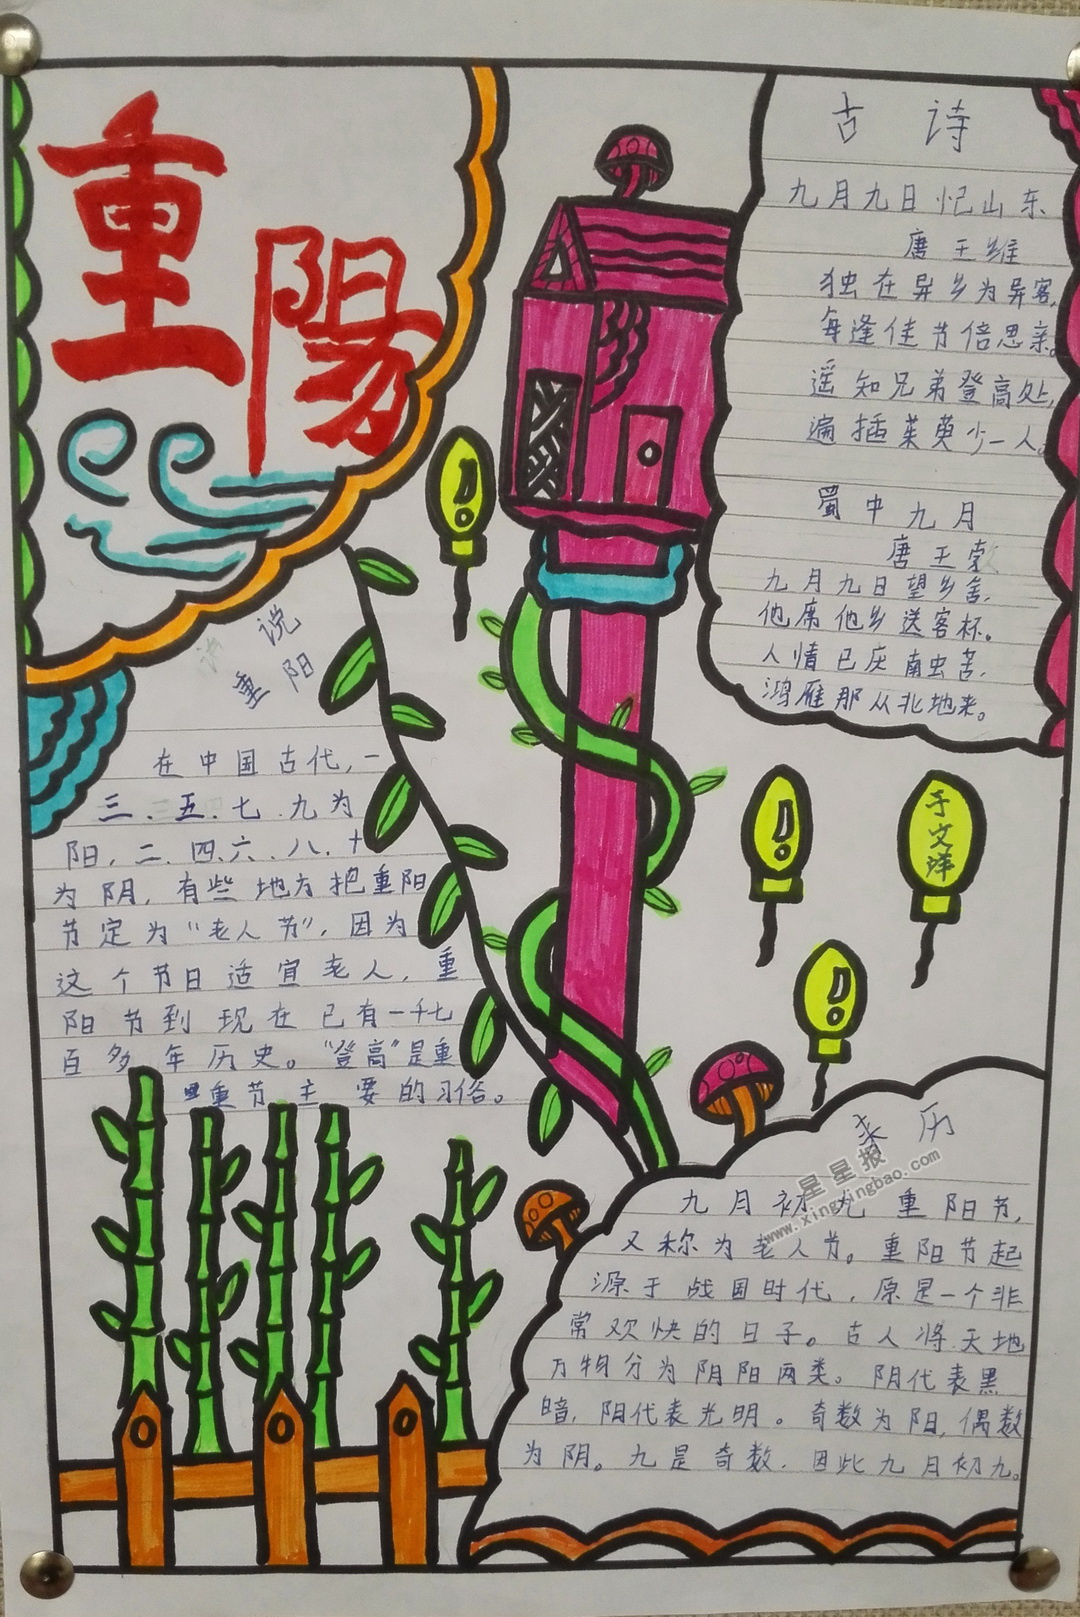 重陽
古诗
九月九日忆山东
唐 王维
独在异乡为异客,
每逢佳节倍思亲。
遥知兄弟登高处,
遍插茱萸少一人。
蜀中九月
唐 王
九月九日望乡台,
他席他乡送客杯。
人情已厌南中苦,
鸿雁那从北地来。
说
重阳
在中国古代,一
三、五、七、九为
阳,二、四、六、八、十
为阴,有些地方把重阳
节定为“老人节”,因为
这个节日适宜老人,重
阳节到现在已有一千七
百多年历史。“登高”是重
重节主要的习俗。
于文泽
来历
九月初九重阳节,
又称为老人节。重阳节起
源于战国时代,原是一个非
常欢快的日子。古人将天地
万物分为阴阳两类。阴代表黑
暗,阳代表光明。奇数为阳,偶数
为阴。九是奇数,因此九月初九。
星星报
www.xingxingbao.com